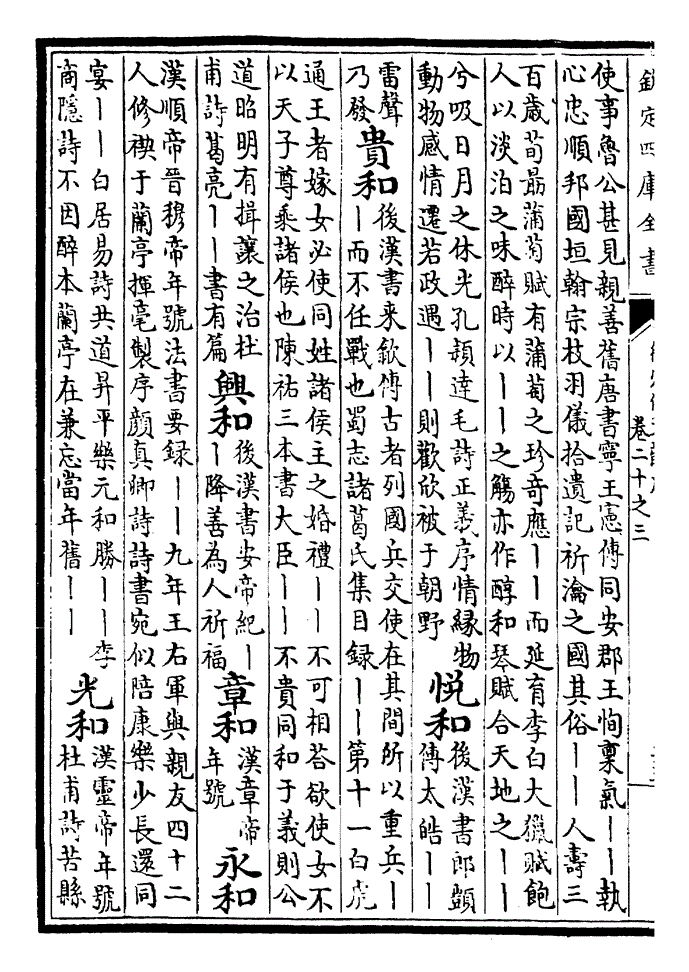 欽定四庫全書
卷二十之三
使事魯公甚見親善舊唐書寧王憲傳同安郡王恂稟氣丨丨執
心忠順邦國垣翰宗枝羽儀拾遺記祈淪之國其俗丨丨人壽三
百歲荀勗蒲萄賦有蒲萄之珍奇應丨丨而延育李白大獵賦飽
人以淡泊之味醉時以丨丨之觴亦作醇和琴賦合天地之丨丨
兮吸日月之休光孔頴達毛詩正義序情緣物
動物感情遷若政遇丨丨則歡欣被于朝野
悅和
後漢書郎顗
傳太皓丨丨
雷聲
乃發
貴和
後漢書来歙傳古者列國兵交使在其間所以重兵丨
丨而不任戰也蜀志諸葛氏集目録丨丨第十一白虎
通王者嫁女必使同姓諸侯主之婚禮丨丨不可相荅欲使女不
以天子尊乘諸侯也陳祐三本書大臣丨丨不貴同和于義則公
道昭明有揖讓之治杜
甫詩葛亮丨丨書有篇
興和
後漢書安帝紀丨
丨降善為人祈福
章和
漢章帝
年號
永和
漢順帝晉穆帝年號法書要録丨丨九年王右軍與親友四十二
人修禊于蘭亭揮毫製序顔真卿詩詩書宛似陪康樂少長還同
宴丨丨白居易詩共道昇平樂元和勝丨丨李
商隱詩不因醉本蘭亭在兼忘當年舊丨丨
光和
漢靈帝年號
杜甫詩苦縣